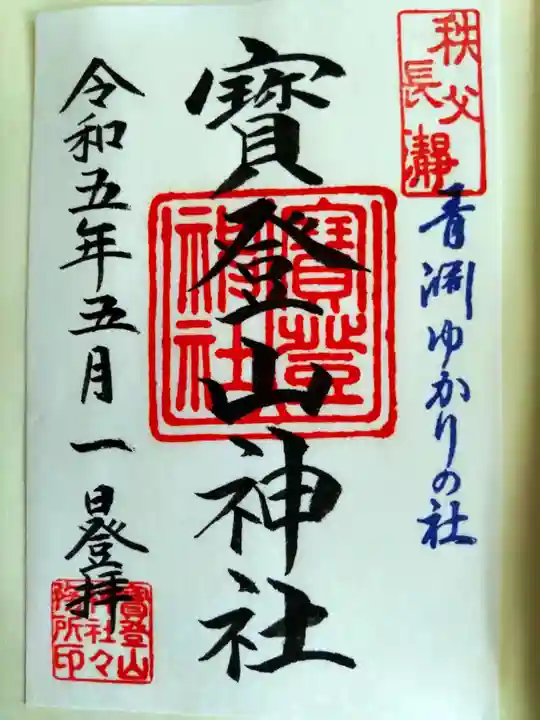 秩父
長瀞
青渊ゆかりの社
寳登山神社
寳登
神社
令和五年五月一日登拝
寳登山
神社々
務所印